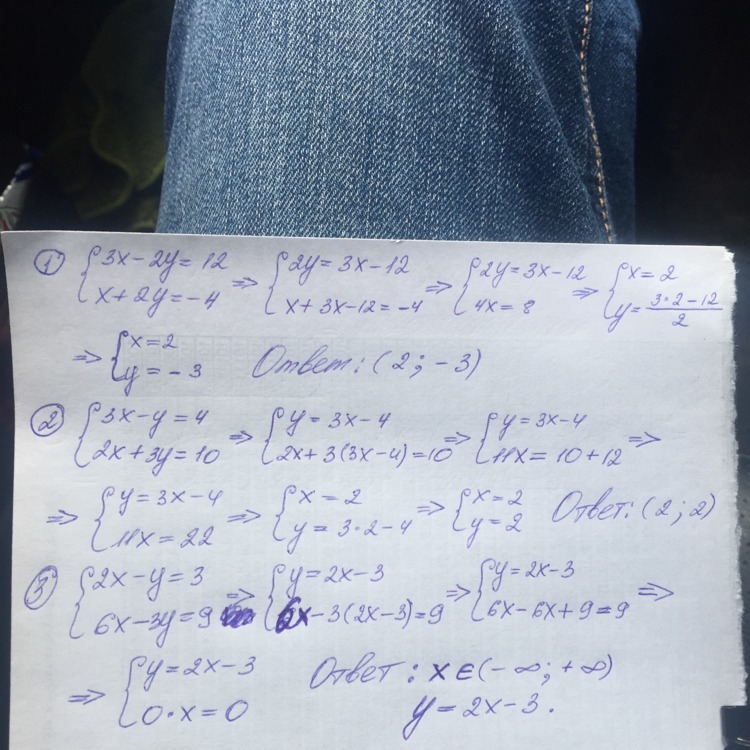 ① {3x-2y=12 x+2y=-4 ⇒ {2y=3x-12 x+3x-12=-4 ⇒ {2y=3x-12 4x=8 ⇒ {x=2 y=(3·2-12)/2
⇒ {x=2 y=-3 Ответ: (2; -3)
② {3x-y=4 2x+3y=10 ⇒ {y=3x-4 2x+3(3x-4)=10 ⇒ {y=3x-4 11x=10+12 ⇒
⇒ {y=3x-4 11x=22 ⇒ {x=2 y=3·2-4 ⇒ {x=2 y=2 Ответ: (2; 2)
③ {2x-y=3 6x-3y=9 ⇒ {y=2x-3 6x-3(2x-3)=9 ⇒ {y=2x-3 6x-6x+9=9 ⇒
⇒ {y=2x-3 0·x=0 Ответ: x∈(-∞; +∞)
y=2x-3.